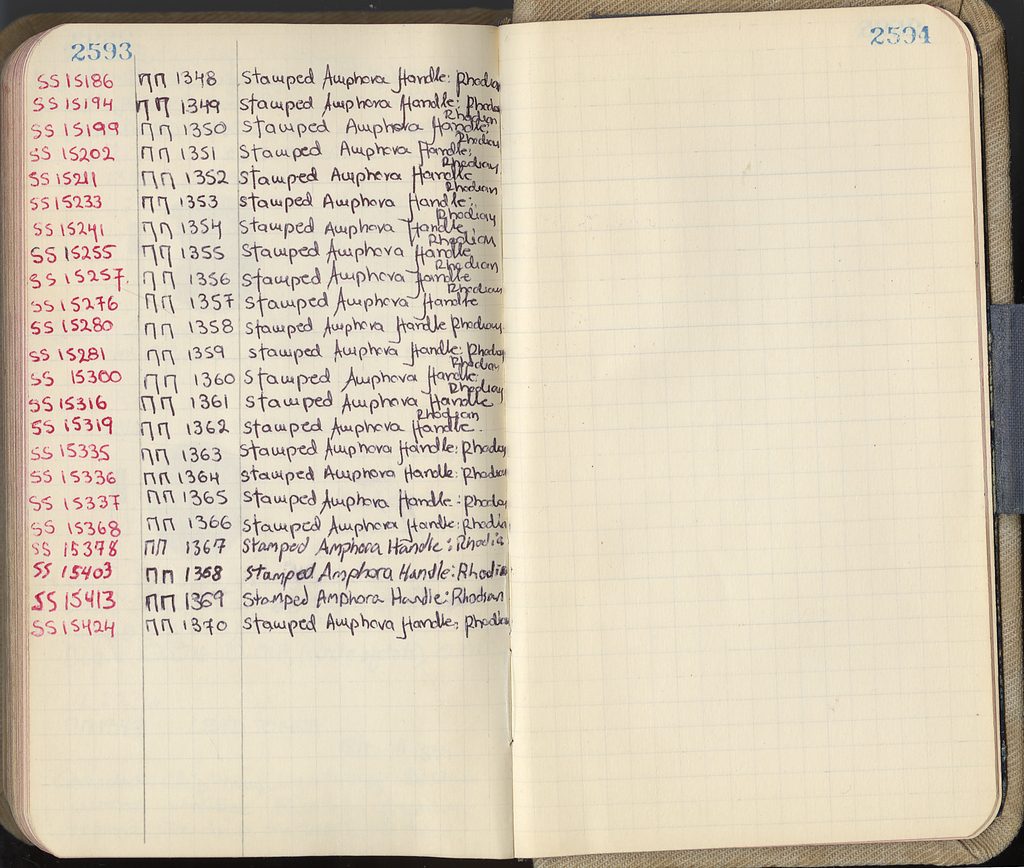 2593
SS 15186 ΠΠ 1348 Stamped Amphora Handle: Rhodian
SS 15194 ΠΠ 1349 Stamped Amphora Handle: Rhodian
SS 15199 ΠΠ 1350 Stamped Amphora Handle: Rhodian
SS 15202 ΠΠ 1351 Stamped Amphora Handle: Rhodian
SS 15211 ΠΠ 1352 Stamped Amphora Handle Rhodian
SS 15233 ΠΠ 1353 Stamped Amphora Handle: Rhodian
SS 15241 ΠΠ 1354 Stamped Amphora Handle Rhodian
SS 15255 ΠΠ 1355 Stamped Amphora Handle Rhodian
SS 15257. ΠΠ 1356 Stamped Amphora Handle Rhodian
SS 15276 ΠΠ 1357 Stamped Amphora Handle Rhodian
SS 15280 ΠΠ 1358 Stamped Amphora Handle Rhodian
SS 15281 ΠΠ 1359 Stamped Amphora Handle: Rhodian
SS 15300 ΠΠ 1360 Stamped Amphora Handle Rhodian
SS 15316 ΠΠ 1361 Stamped Amphora Handle Rhodian
SS 15319 ΠΠ 1362 Stamped Amphora Handle. Rhodian
SS 15335 ΠΠ 1363 Stamped Amphora Handle: Rhodian
SS 15336 ΠΠ 1364 Stamped Amphora Handle: Rhodian
SS 15337 ΠΠ 1365 Stamped Amphora Handle: Rhodian
SS 15368 ΠΠ 1366 Stamped Amphora Handle: Rhodian
SS 15378 ΠΠ 1367 Stamped Amphora Handle: Rhodian
SS 15403 ΠΠ 1368 Stamped Amphora Handle: Rhodian
SS 15413 ΠΠ 1369 Stamped Amphora Handle: Rhodian
SS 15424 ΠΠ 1370 Stamped Amphora Handle: Rhodian
2594